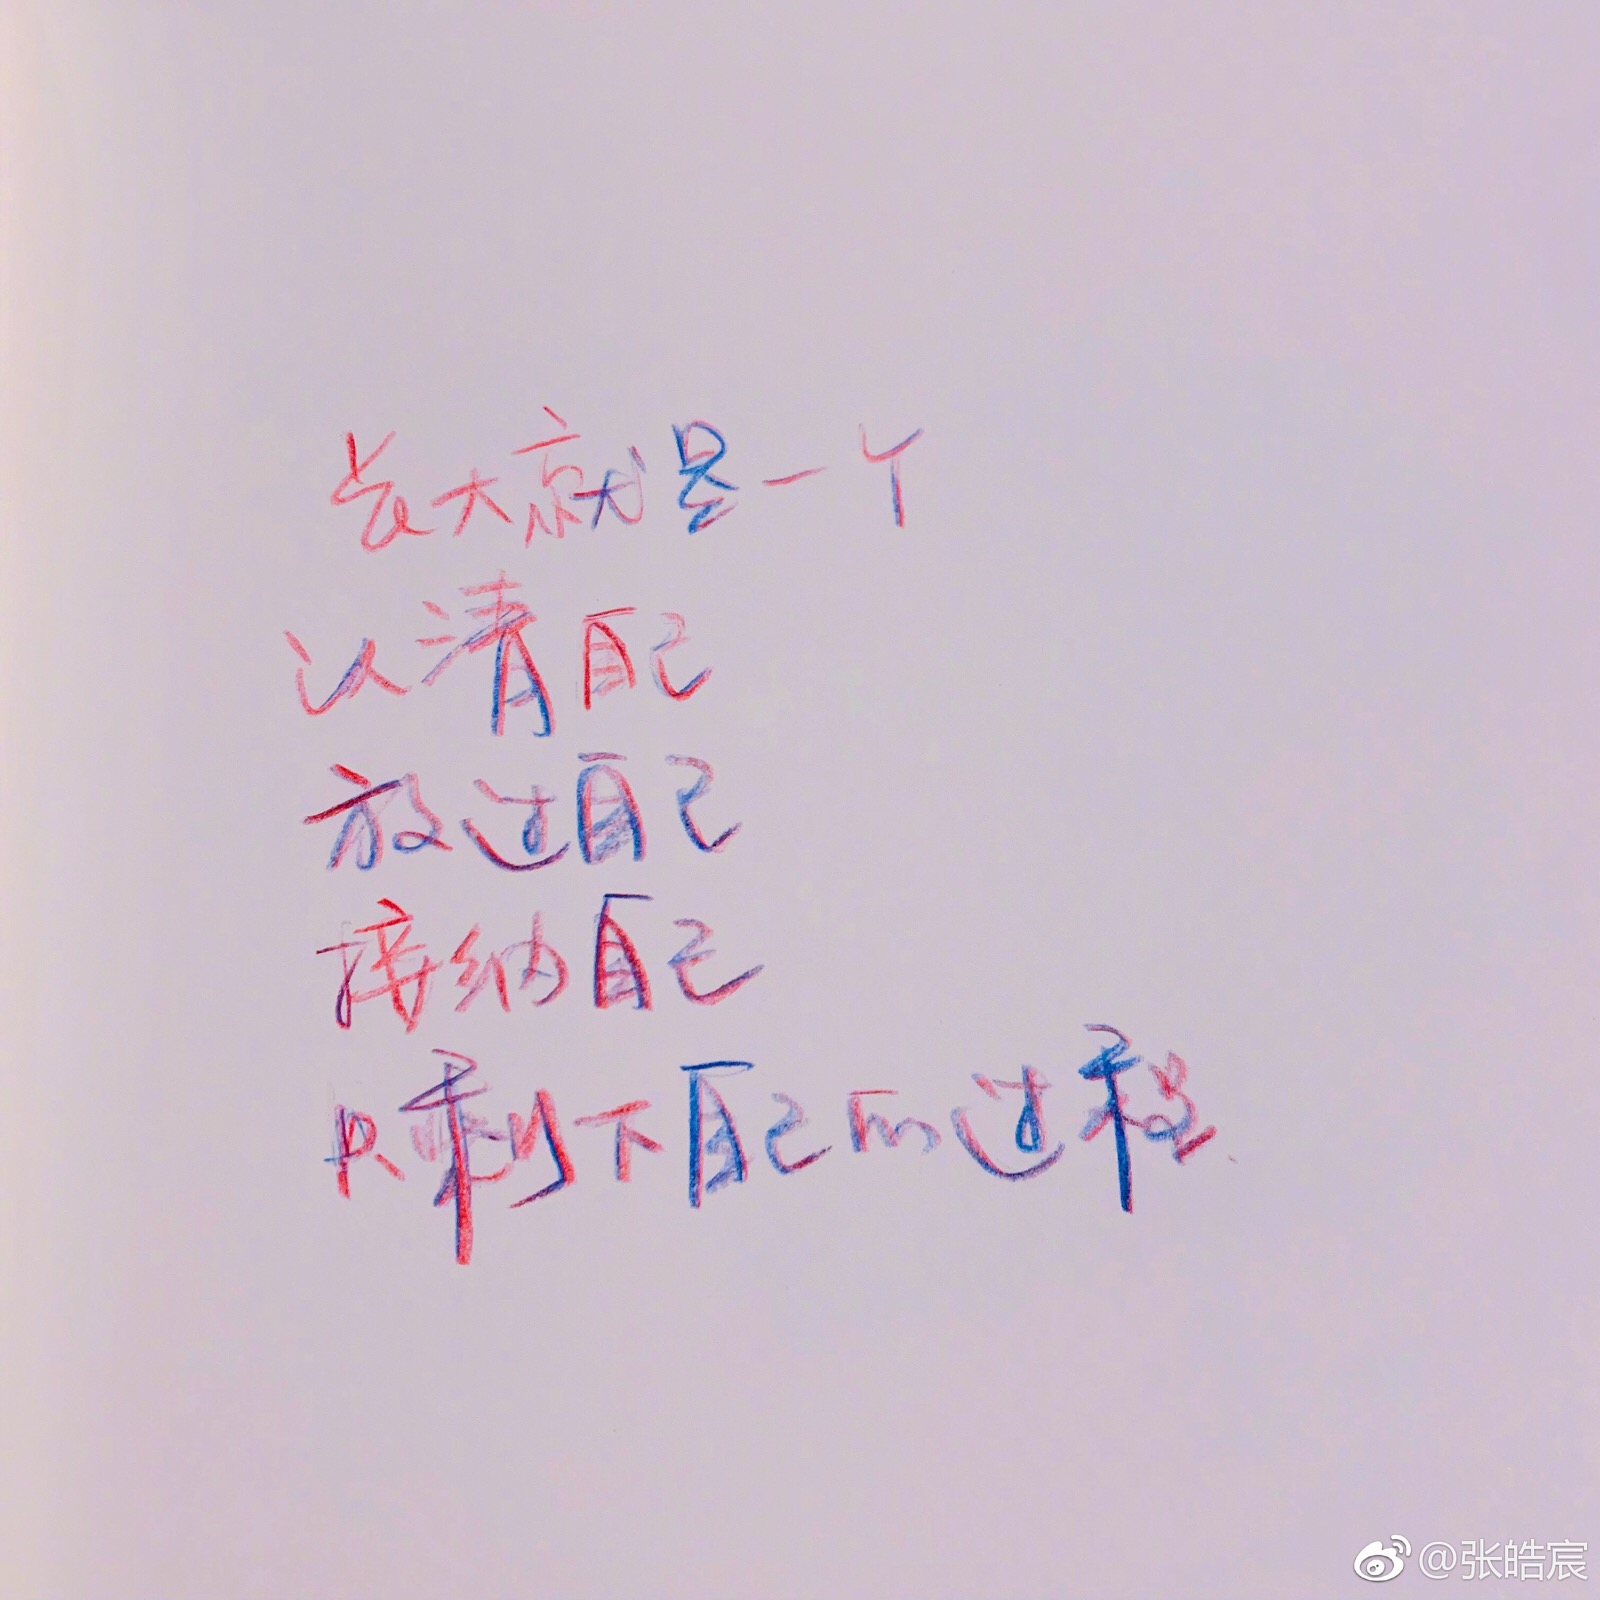 长大就是一个
认清自己
放过自己
接纳自己
只剩下自己的过程.
@张皓宸